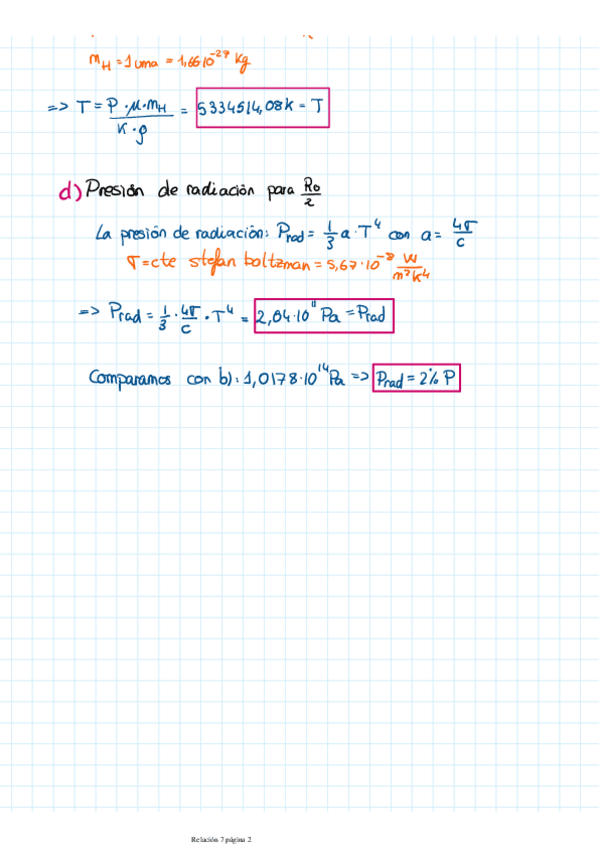 m_H = 1 uma = 1,66 10^-27 Kg
=> T = P·μ·m_H / K·ρ = 5334514,08k = T
d) Presión de radiación para Ro/2
La presión de radiación: P_rad = 1/3 a·T^4 con a = 4σ/c
σ = cte stefan boltzman = 5,67·10^-8 W/m²K^4
=> P_rad = 1/3 · 4σ/c · T^4 = 2,04·10^11 Pa = P_rad
Comparamos con b): 1,0178·10^14 Pa => P_rad = 2% P
Relación 7 página 2